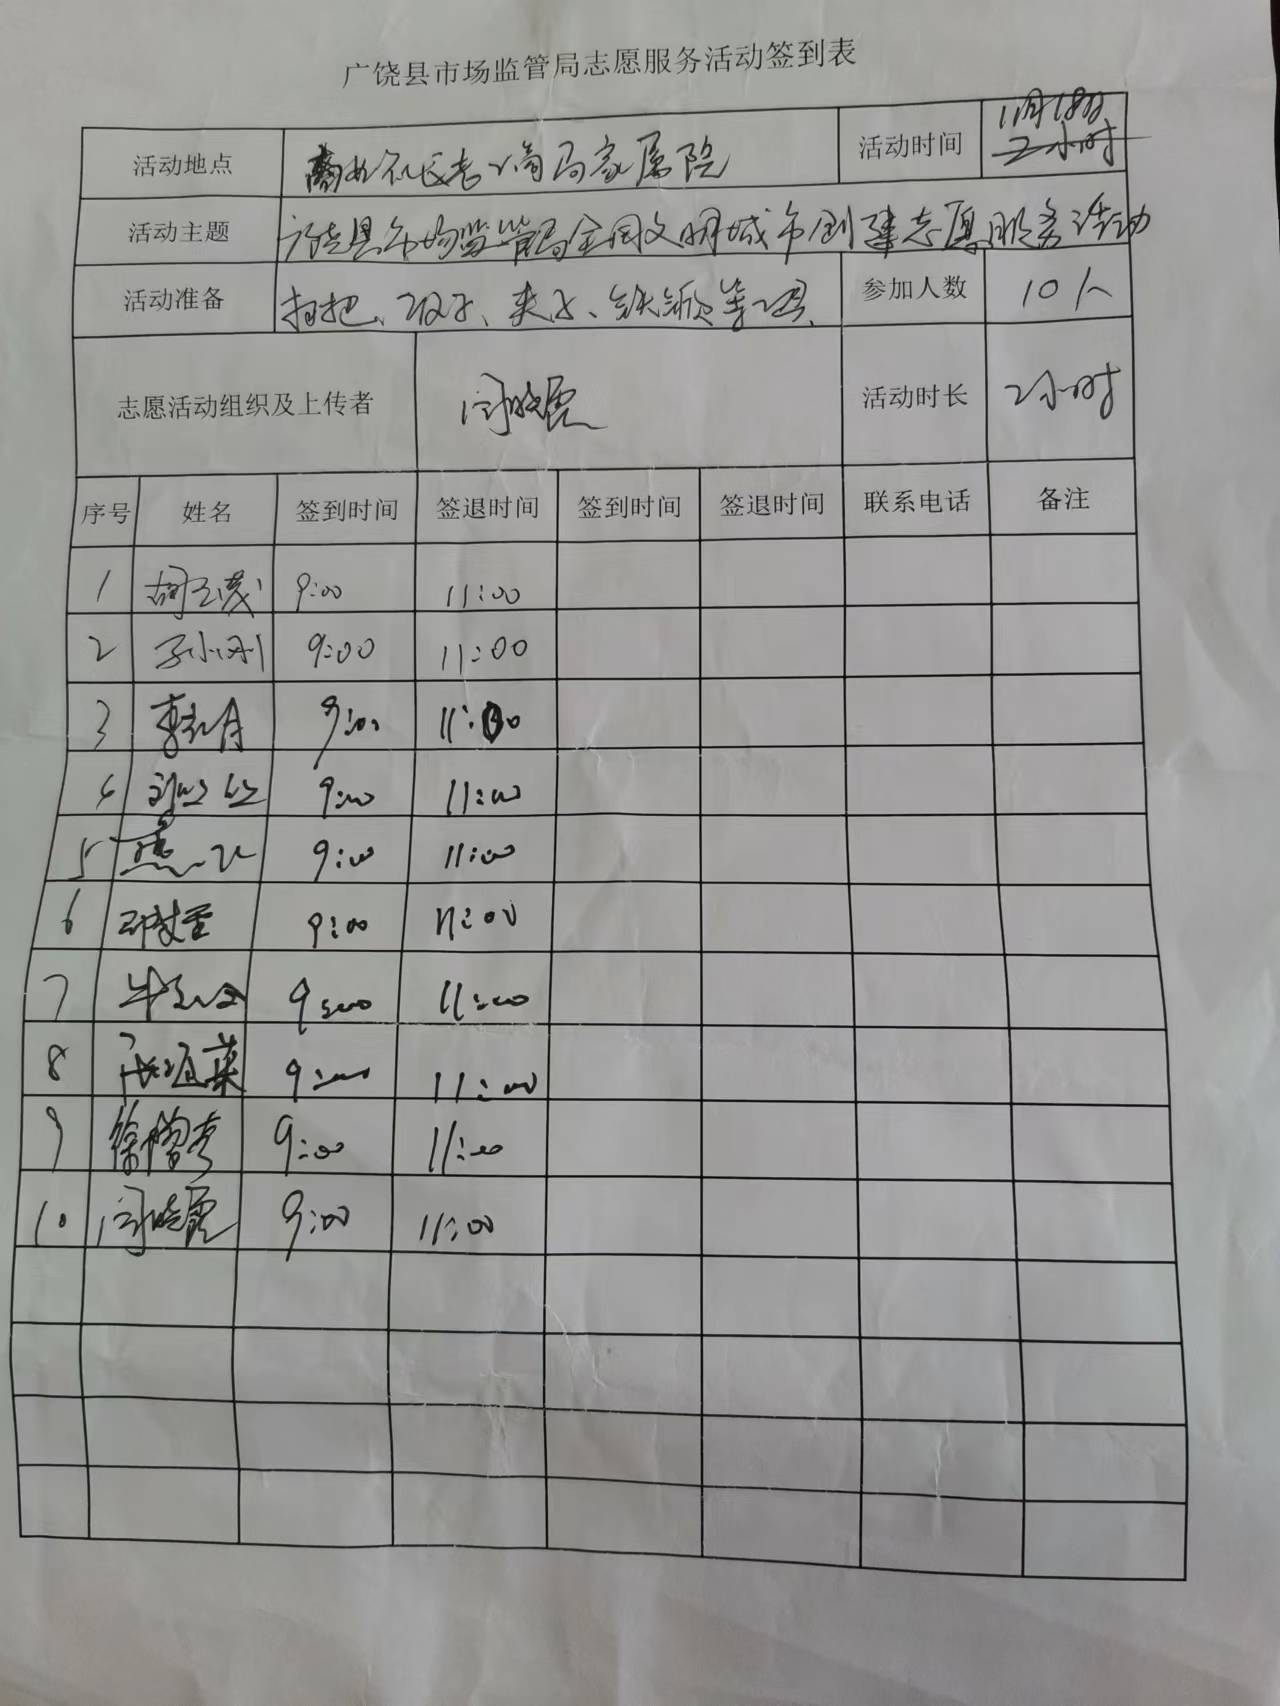 广饶县市场监管局志愿服务活动签到表
活动地点 老工商局家属院 活动时间 11月18日 2小时
活动主题 广饶县市场监管局全国文明城市创建志愿服务活动
活动准备 扫把、夹子、铁锨等工具 参加人数 10人
志愿活动组织及上传者 闫晓霞 活动时长 2小时
序号 姓名 签到时间 签退时间 签到时间 签退时间 联系电话 备注
1 9:00 11:00
2 孙小刚 9:00 11:00
3 9:00 11:00
4 9:00 11:00
5 9:00 11:00
6 9:00 11:00
7 9:00 11:00
8 9:00 11:00
9 9:00 11:00
10 闫晓霞 9:00 11:00